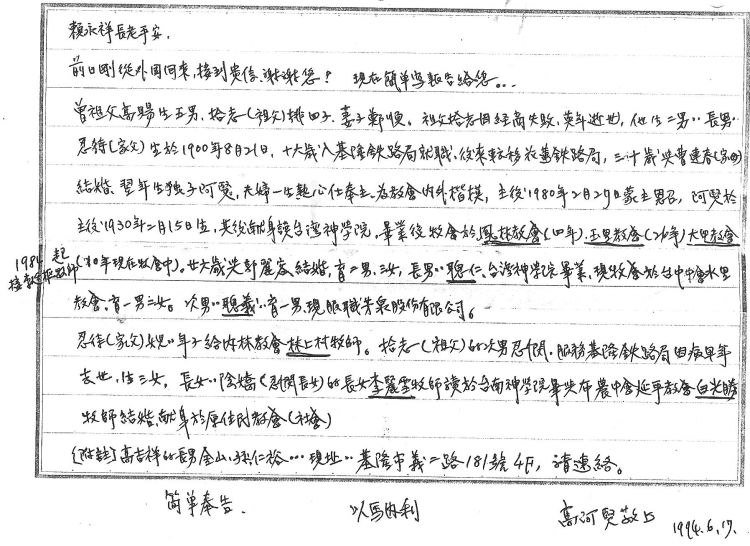 賴永祥長老平安.
前日剛從外国回來, 接到貴信, 謝謝您? 現在簡单写報告給您...
曾祖父高賜生五男. 拾志(祖父)排四子. 妻子鄭順. 祖父拾志因經商失敗, 英年逝世, 他生二男.. 長男..
忍待(家父)生於1900年8月21日, 十六歲入基隆鉄路局就職. 後來転移花蓮鉄路局, 三十歲與曹連春(家母)
結婚. 翌年生独子阿賢, 夫婦一生熱心仕奉主. 為教會內外楷模, 主後1980年2月27日蒙主恩召, 阿賢於
主後1930年二月15日生, 其後献身讀台湾神學院, 畢業後牧會於鳳林教會(四年). 玉里教會(26年) 大甲教會
1984起
(10年現在牧會中). 廿六歲與郭麗家結婚, 育二男. 三女, 長男..聰仁, 台湾神學院畢業, 現牧會於台中中會水里
教會, 育一男三女。次男..聰義.. 育一男, 現服職 泉股份有限公司。
忍待(家父)娘..年子給內林教會林上村牧師。拾志一(祖父)的次男忍 . 服務基隆鉄路局因病早年
去世. 生三女, 長女.. 陰嬌(忍 長女)的長女李麗雲牧師讀於台南神學院畢與布農中會延平教會白光勝
牧師結婚, 献身於原住民教會(社會)
[附註] 高吉祥的長男金山. 孫仁裕... 現址.. 基隆市義二路181號4F, 請連絡。
簡单奉告. 以馬內利 高阿賢敬上 1994.6.17.